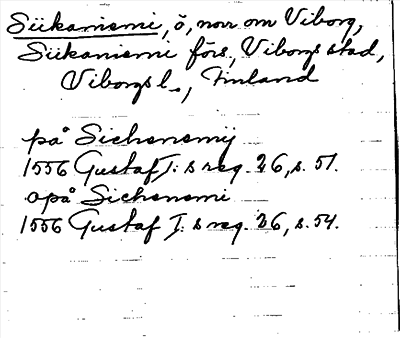 Siikaniemi, ö, norr om Viborg,
Siikaniemi förs, Viborgs stad,
Viborgs l., Finland
på Sichenemij
1556 Gustaf I:s reg. 26, s. 51.
opå Sichenemi
1556 Gustaf I:s reg. 26, s. 54.